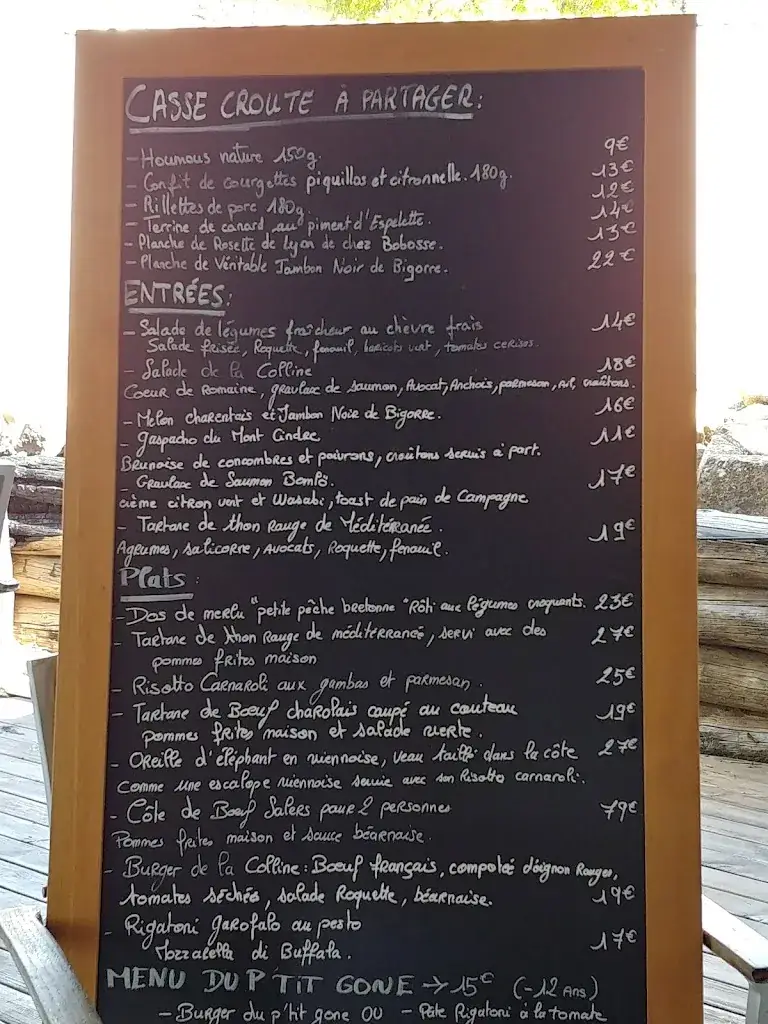 CASSE CROUTE À PARTAGER:
- Houmous nature 150g. 9€
- Confit de courgettes piquillos et citronnelle. 180g. 13€
- Rillettes de porc 180g. 12€
- Terrine de canard au piment d'Espelette. 14€
- Planche de Rosette de Lyon de chez Bobosse. 13€
- Planche de Véritable Jambon Noir de Bigorre. 22€
ENTRÉES:
- Salade de légumes fraîcheur au chèvre frais 14€
Salade frisée, Roquette, fenouil, haricots vert, tomates cerises.
- Salade de la Colline 18€
Coeur de Romaine, gravlax de saumon, Avocat, Anchois, parmesan, Ail, croûtons.
- Melon charentais et Jambon Noir de Bigorre. 16€
- Gaspacho du Mont Cindre 11€
Brunoise de concombres et poivrons, croûtons servis à part.
- Gravlax de Saumon Bomlö. 17€
crème citron vert et Wasabi, toast de pain de Campagne
- Tartare de thon Rouge de Méditéranée. 19€
Agrumes, salicorne, Avocats, Roquette, fenouil.
Plats:
- Dos de merlu "petite pêche bretonne" Rôti aux légumes croquants. 23€
- Tartare de thon Rouge de méditerranée, servi avec des 27€
pommes frites maison
- Risotto Carnaroli aux gambas et parmesan. 25€
- Tartare de Bœuf charolais coupé au couteau 19€
pommes frites maison et salade verte.
- Oreille d'éléphant en viennoise, veau taillé dans la côte 27€
Comme une escalope viennoise servie avec son Risotto carnaroli.
- Côte de Bœuf Salers pour 2 personnes 79€
Pommes frites maison et sauce béarnaise.
- Burger de la Colline: Bœuf français, compotée d'oignon Rouges,
tomates séchés, salade Roquette, béarnaise. 19€
- Rigatoni Garofalo au pesto
Mozzarella di Buffala. 17€
MENU DU P'TIT GONE → 15€ (-12 Ans)
- Burger du p'tit gone OU - Pâte Rigatoni à la tomate